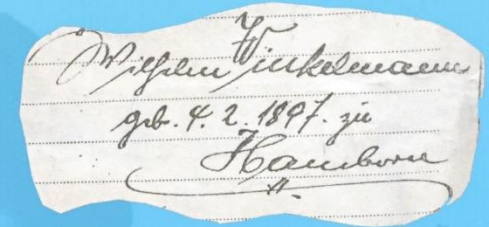 Wilhelm Winkelmann
geb. 4. 2. 1897. zu
Hamborn